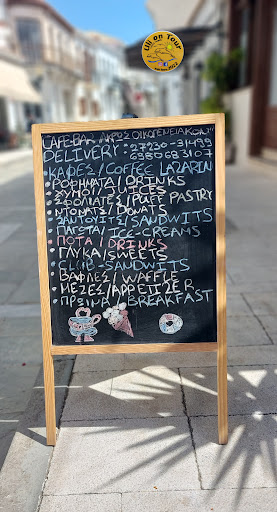 Lili on Tour
CAFE-BAR ΛΥΡΟΣ ΟΙΚΟΓΕΝΕΙΑΚΟΝ
DELIVERY: 27230-31499
6980683107
ΚΑΦΕΣ/COFFEE LAZARIN
ΡΟΦΗΜΑΤΑ/DRINKS
ΧΥΜΟΙ/JUICES
ΣΦΟΛΙΑΤΕΣ/PUFF PASTRY
ΝΤΟΝΑΤΣ/DONATS
ΣΑΝΤΟΥΙΤΣ/SANDWITS
ΠΑΓΩΤΑ/ICE-CREAMS
ΠΟΤΑ/DRINKS
ΓΛΥΚΑ/SWEETS
CLUB-SANDWITS
ΒΑΦΛΕΣ/WAFFLE
ΜΕΖΕΣ/APPETIZER
ΠΡΩΙΝΑ/BREAKFAST